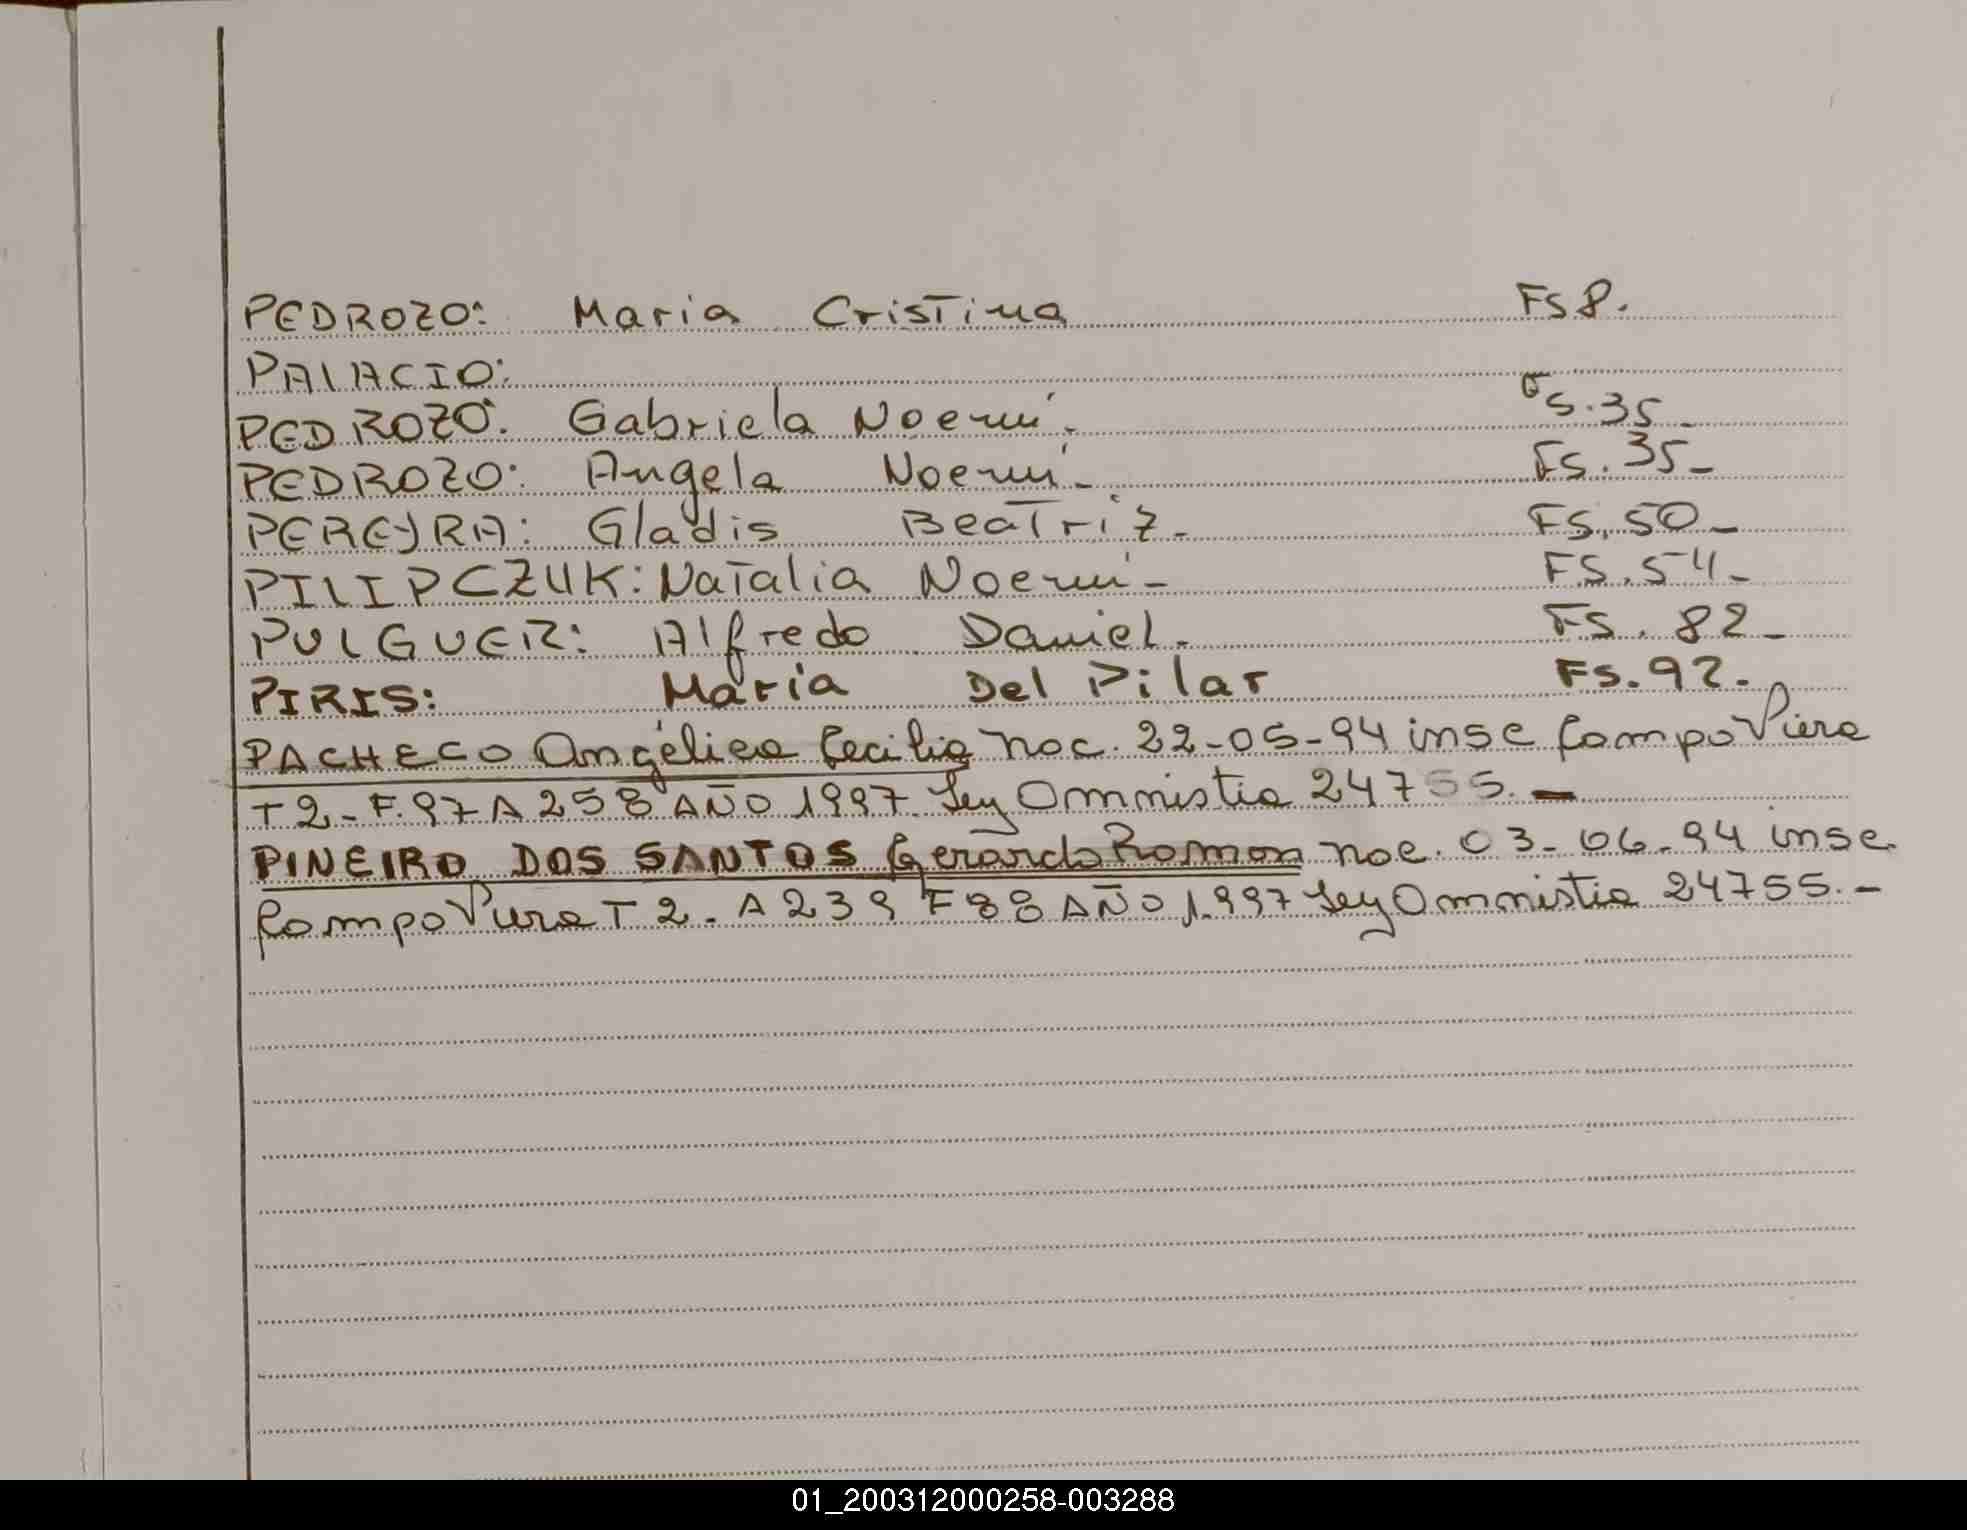 PEDROZO: Maria Cristina Fs 8.
PALACIO:
PEDROZO: Gabriela Noemí. Fs. 35_
PEDROZO: Angela Noemí_ Fs. 35_
PEREYRA: Gladis Beatriz_ Fs. 50_
PILIPCZUK: Natalia Noemí_ FS. 54_
PULGUER: Alfredo Daniel_ Fs. 82_
PIRIS: María Del Pilar Fs. 92._
PACHECO Angélica Cecilia nac. 22-05-94 insc Campo Viera
T 2_ F. 97 A 258 AÑO 1997. Ley Omnistia 24755._
PINEIRO DOS SANTOS Gerardo Ramon nac. 03-06-94 insc.
Campo Viera T 2. A 239 F 88 AÑO 1.997 Ley Omnistia 24755._
01_200312000258-003288